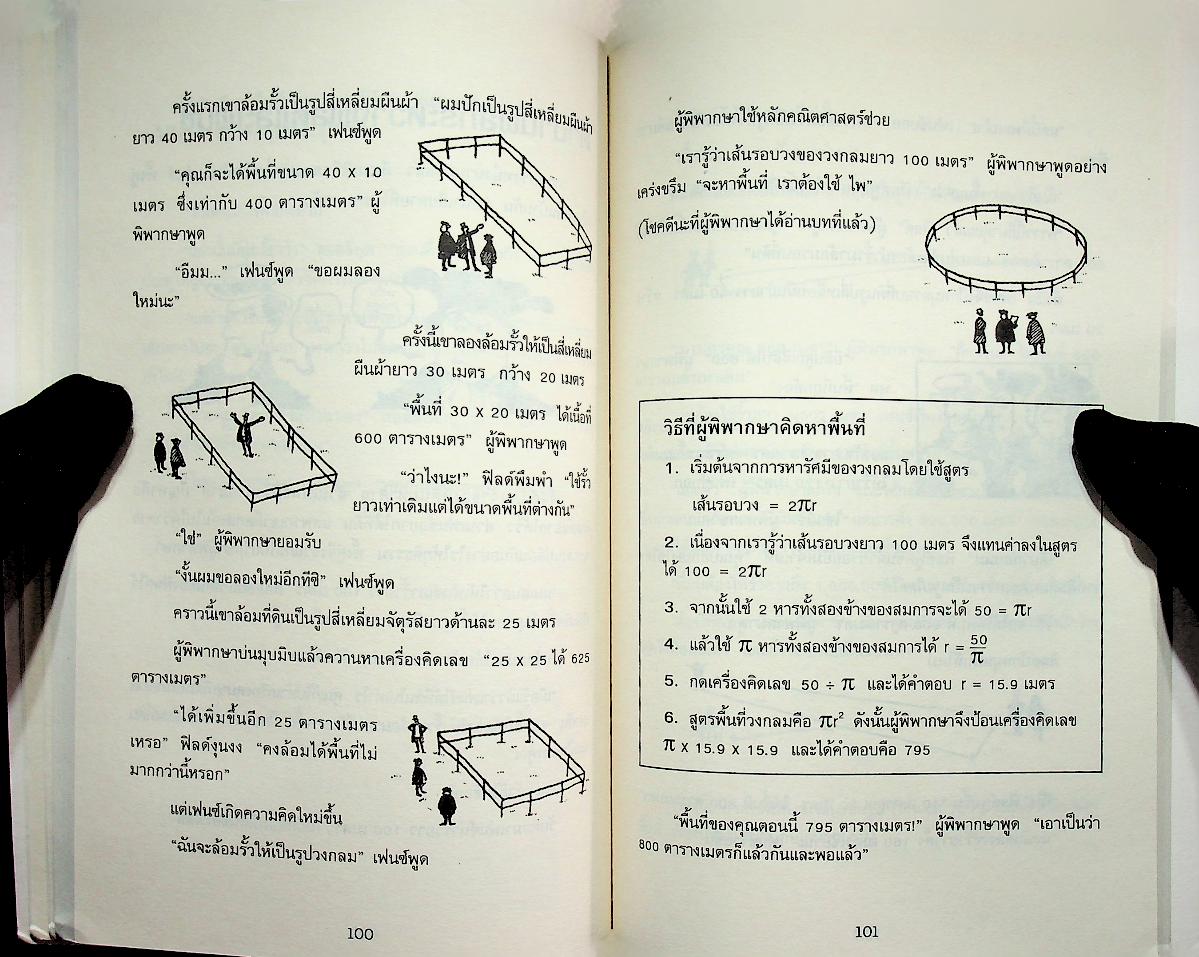 ครั้งแรกเขาล้อมรั้วเป็นรูปสี่เหลี่ยมผืนผ้า “ผมปักเป็นรูปสี่เหลี่ยมผืนผ้า
ยาว 40 เมตร กว้าง 10 เมตร” เฟนซ์พูด
“คุณก็จะได้พื้นที่ขนาด 40 x 10
เมตร ซึ่งเท่ากับ 400 ตารางเมตร” ผู้
พิพากษาพูด
“อืมม...” เฟนซ์พูด “ขอผมลอง
ใหม่นะ”
ครั้งนี้เขาลองล้อมรั้วให้เป็นสี่เหลี่ยม
ผืนผ้ายาว 30 เมตร กว้าง 20 เมตร
“พื้นที่ 30 x 20 เมตร ได้เนื้อที่
600 ตารางเมตร” ผู้พิพากษาพูด
“ว่าไงนะ!” ฟิลด์พึมพำ “ใช้รั้ว
ยาวเท่าเดิมแต่ได้ขนาดพื้นที่ต่างกัน”
“ใช่” ผู้พิพากษายอมรับ
“งั้นผมขอลองใหม่อีกทีซิ” เฟนซ์พูด
คราวนี้เขาล้อมที่ดินเป็นรูปสี่เหลี่ยมจัตุรัสยาวด้านละ 25 เมตร
ผู้พิพากษาบ่นมุบมิบแล้วควานหาเครื่องคิดเลข “25 x 25 ได้ 625
ตารางเมตร”
“ได้เพิ่มขึ้นอีก 25 ตารางเมตร
เหรอ” ฟิลด์งุนงง “คงล้อมได้พื้นที่ไม่
มากกว่านี้หรอก”
แต่เฟนซ์เกิดความคิดใหม่ขึ้น
“ฉันจะล้อมรั้วให้เป็นรูปวงกลม” เฟนซ์พูด
100
ผู้พิพากษาใช้หลักคณิตศาสตร์ช่วย
“เรารู้ว่าเส้นรอบวงของวงกลมยาว 100 เมตร” ผู้พิพากษาพูดอย่าง
เคร่งขรึม “จะหาพื้นที่ เราต้องใช้ ไพ”
(โชคดีนะที่ผู้พิพากษาได้อ่านบทที่แล้ว)
วิธีที่ผู้พิพากษาคิดหาพื้นที่
1. เริ่มต้นจากการหารัศมีของวงกลมโดยใช้สูตร
เส้นรอบวง = 2πr
2. เนื่องจากเรารู้ว่าเส้นรอบวงยาว 100 เมตร จึงแทนค่าลงในสูตร
ได้ 100 = 2πr
3. จากนั้นใช้ 2 หารทั้งสองข้างของสมการจะได้ 50 = πr
4. แล้วใช้ π หารทั้งสองข้างของสมการได้ r = 50/π
5. กดเครื่องคิดเลข 50 ÷ π และได้คำตอบ r = 15.9 เมตร
6. สูตรพื้นที่วงกลมคือ πr² ดังนั้นผู้พิพากษาจึงป้อนเครื่องคิดเลข
π x 15.9 x 15.9 และได้คำตอบคือ 795
“พื้นที่ของคุณตอนนี้ 795 ตารางเมตร!” ผู้พิพากษาพูด “เอาเป็นว่า
800 ตารางเมตรก็แล้วกันและพอแล้ว”
101